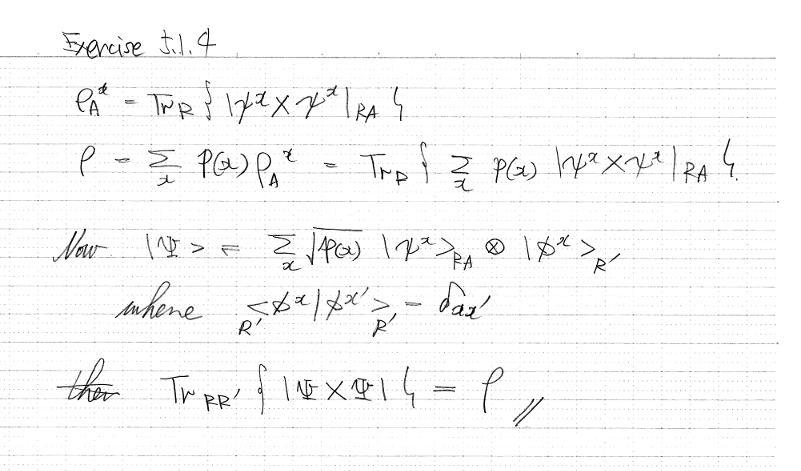 Exercise 5.1.4
ρ_A^x = Tr_R { |ψ^x X ψ^x|_RA }
ρ = Σ_x p(x) ρ_A^x = Tr_R { Σ_x p(x) |ψ^x X ψ^x|_RA }.
Now |Ψ> = Σ_x √p(x) |ψ^x>_RA ⊗ |φ^x>_R'
where _R'<φ^x|φ^x'>_R' = δ_xx'
then Tr_RR' { |Ψ X Ψ| } = ρ //